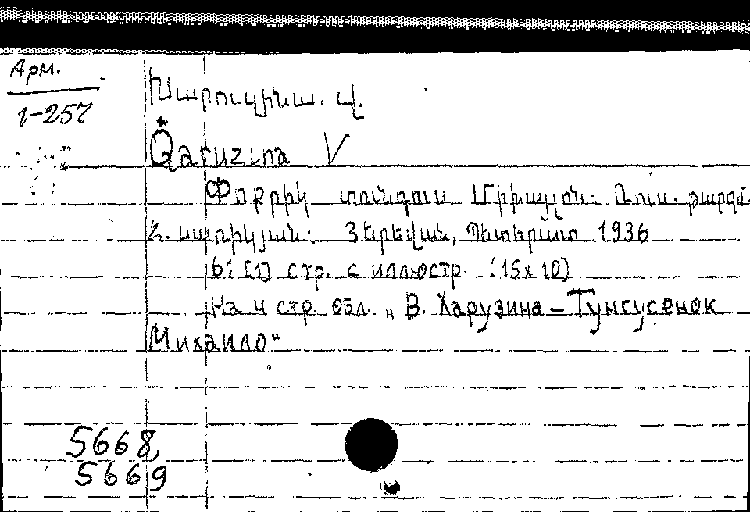 Арм.
1-257
Խարուզինա. Վ.
Qaruzina V
Փոքրիկ տունգուս Միխայլոն: Ռուս. թարգմ.
Հ. Մարիկյան: Յերեվան, Պետհրատ 1936
6: [1] стр. с иллюстр. (15x10)
На 4 стр. обл. „В. Харузина - Тунгусенок
Михаило"
5668,
5669